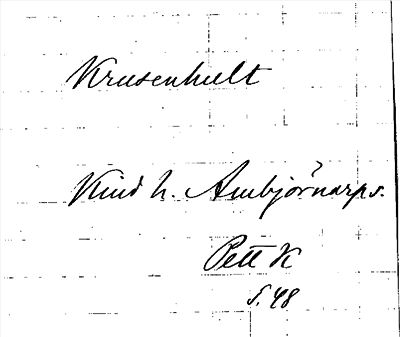 Krusenhult
Kind h. Ambjörnarps.
Pett K
s. 48